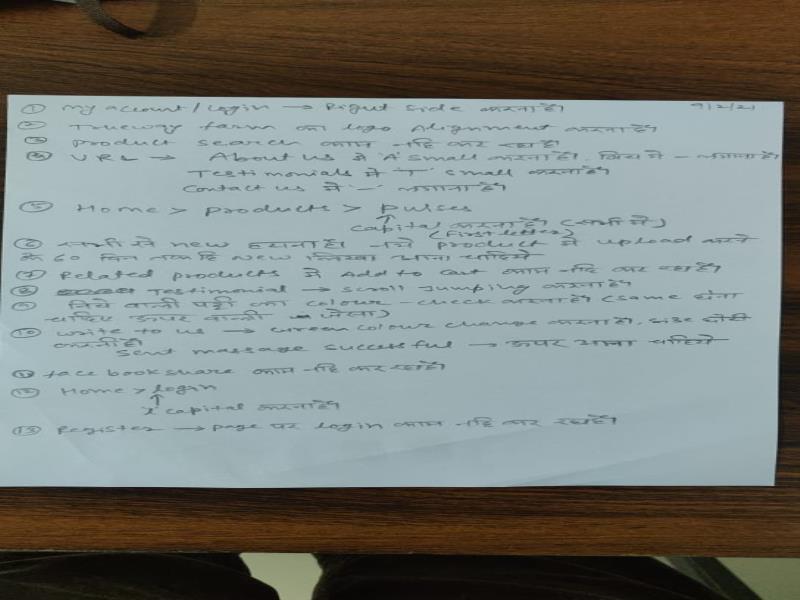 ① My account / Login → Right side करना है। 9/2/21
② Trueway farm का logo Alignment करना है।
③ Product search काम नहि कर रहा है
④ URL → About us मे 'A' small करना है। बिच मे - लगाना है।
Testimonials मे 'T' small करना है।
Contact us मे '-' लगाना है।
⑤ Home > Products > Pulses
↑
capital करना है (सभी मे)
(First letter)
⑥ सभी से new हटाना है। नये product मे upload करने
के 60 दिन तक हि new लिखा आना चाहिये
⑦ Related products मे Add to cart काम नहि कर रहा है।
⑧ Testimonial → scroll Jumping करना है।
⑨ निचे वाली पट्टी का colour - check करना है (same होना
चाहिए ऊपर वाली जैसा)
⑩ write to us → Green colour change करना है. size छोटी
करनी है।
Sent massage successful → ऊपर आना चाहिये
⑪ face book share काम नहि कर रहा है।
⑫ Home > login
↑
l capital करना है।
⑬ Register → page पर login काम नहि कर रहा है।